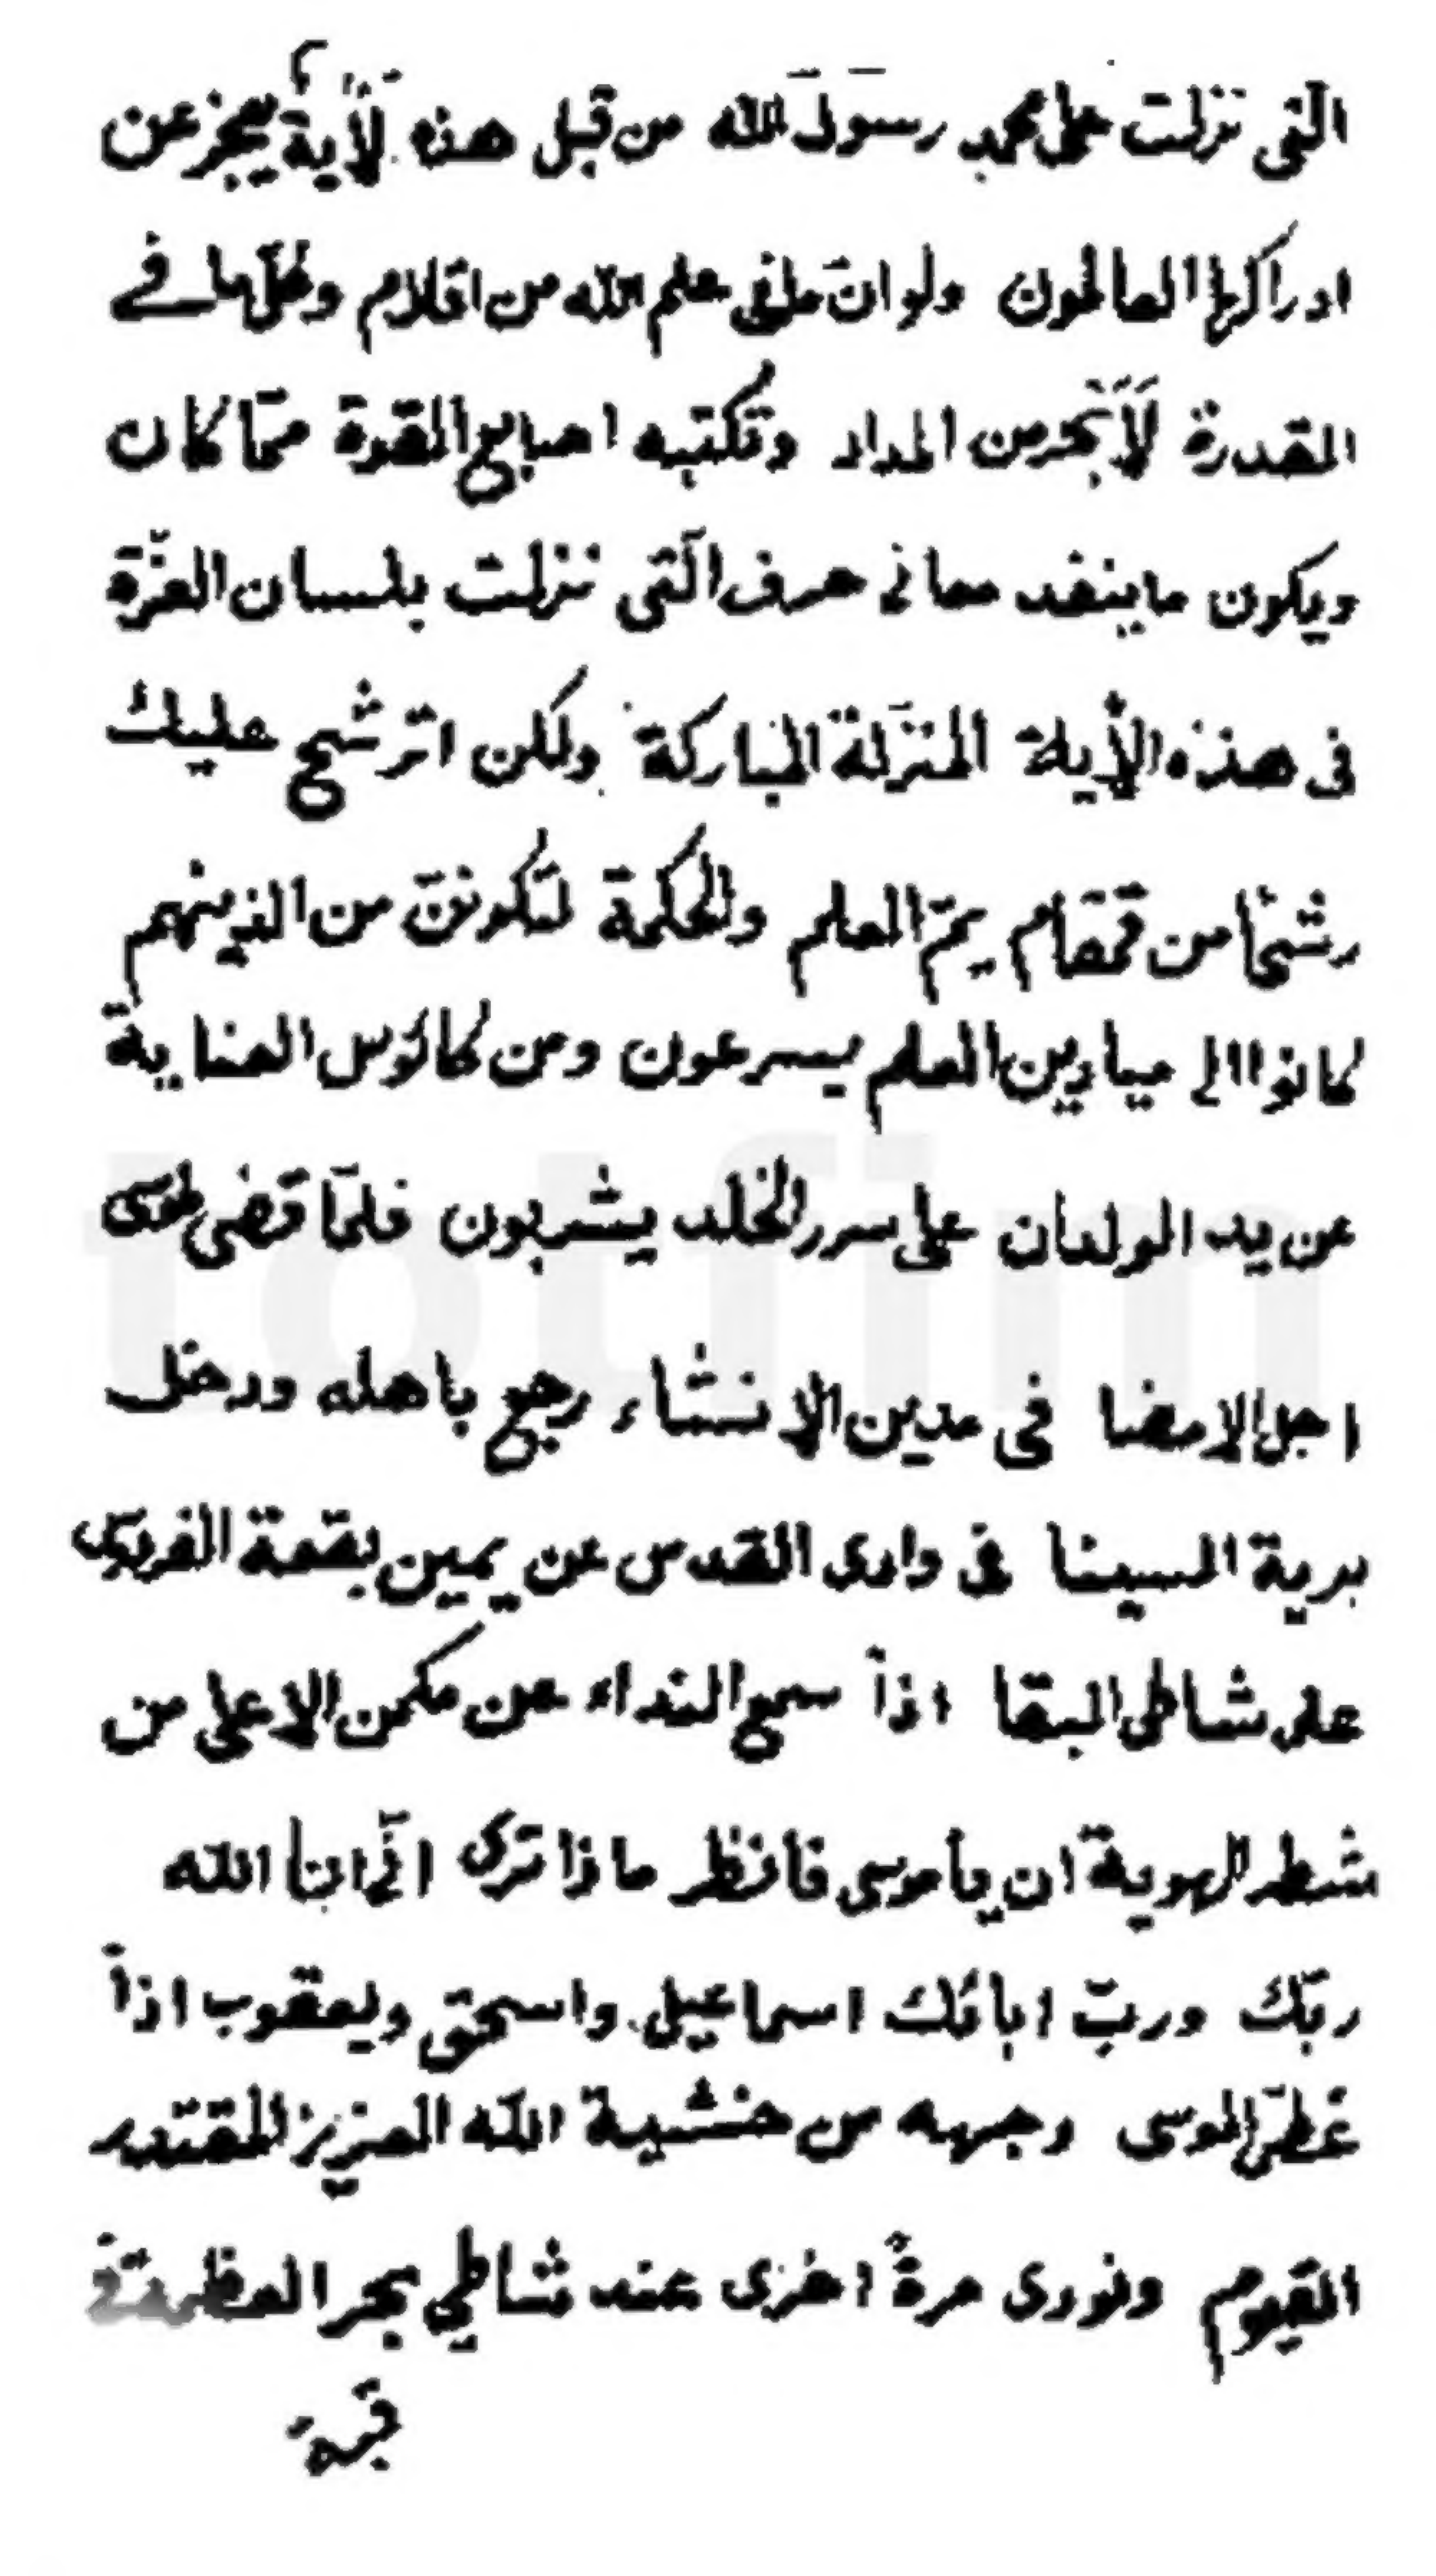 التى نزلت على محمد رسول الله من قبل هذه لأية يعجز عن
ادراكها العالمون ولو انّ ما فى علم الله من اقلام وكلّ ما فے
القدرة لأبحر من المداد وتكتبه اصابع القدرة ممّا كان
ويكون ما ينفد معانى حرف الّتى نزلت بلسان العزّة
فى هذه الأية المنزلة المباركة ولكن اترشح عليك
رشحاً من قمقام يمّ العلم والحكمة لتكوننّ من الذينهم
كانوا الى ميادين العلم يسرعون ومن كاؤس العناية
عن يد الولدان على سرر الخلد يشربون فلمّا قضى موسى
اجل الامضا فى مدين الانشاء رجع باهله ودخل
برية السينا فى وادى القدس عن يمين بقعة الفردوس
على شاطى البقا اذاً سمع النداء عن مكمن الاعلى من
شطر الهوية ان يا موسى فانظر ماذا ترى انّى انا الله
ربّك وربّ ابائك اسماعيل واسحق ويعقوب اذاً
غطى الموسى وجهه من خشية الله العزيز المقتدر
القيوم ونودى مرةً اخرى عند شاطي بحر العظمة